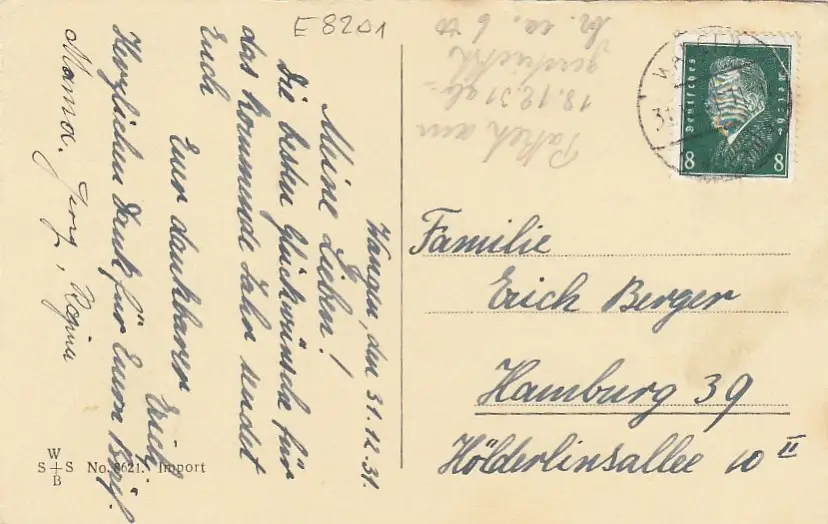 E 8201
Wangen, den 31.12.31.
Meine Lieben!
Die besten Glückwünsche für
das kommende Jahr sendet
Euch
Euer dankbarer
Erich
Herzlichen Dank für Euern Brief!
Mama. Georg, Regina
Paket am
18.12.31 ab-
geschickt
ca. 6
Deutsches Reich
8 8
Familie
Erich Berger
Hamburg 39
Hölderlinsallee 10 II
W
S S
B
No. 8621. Import